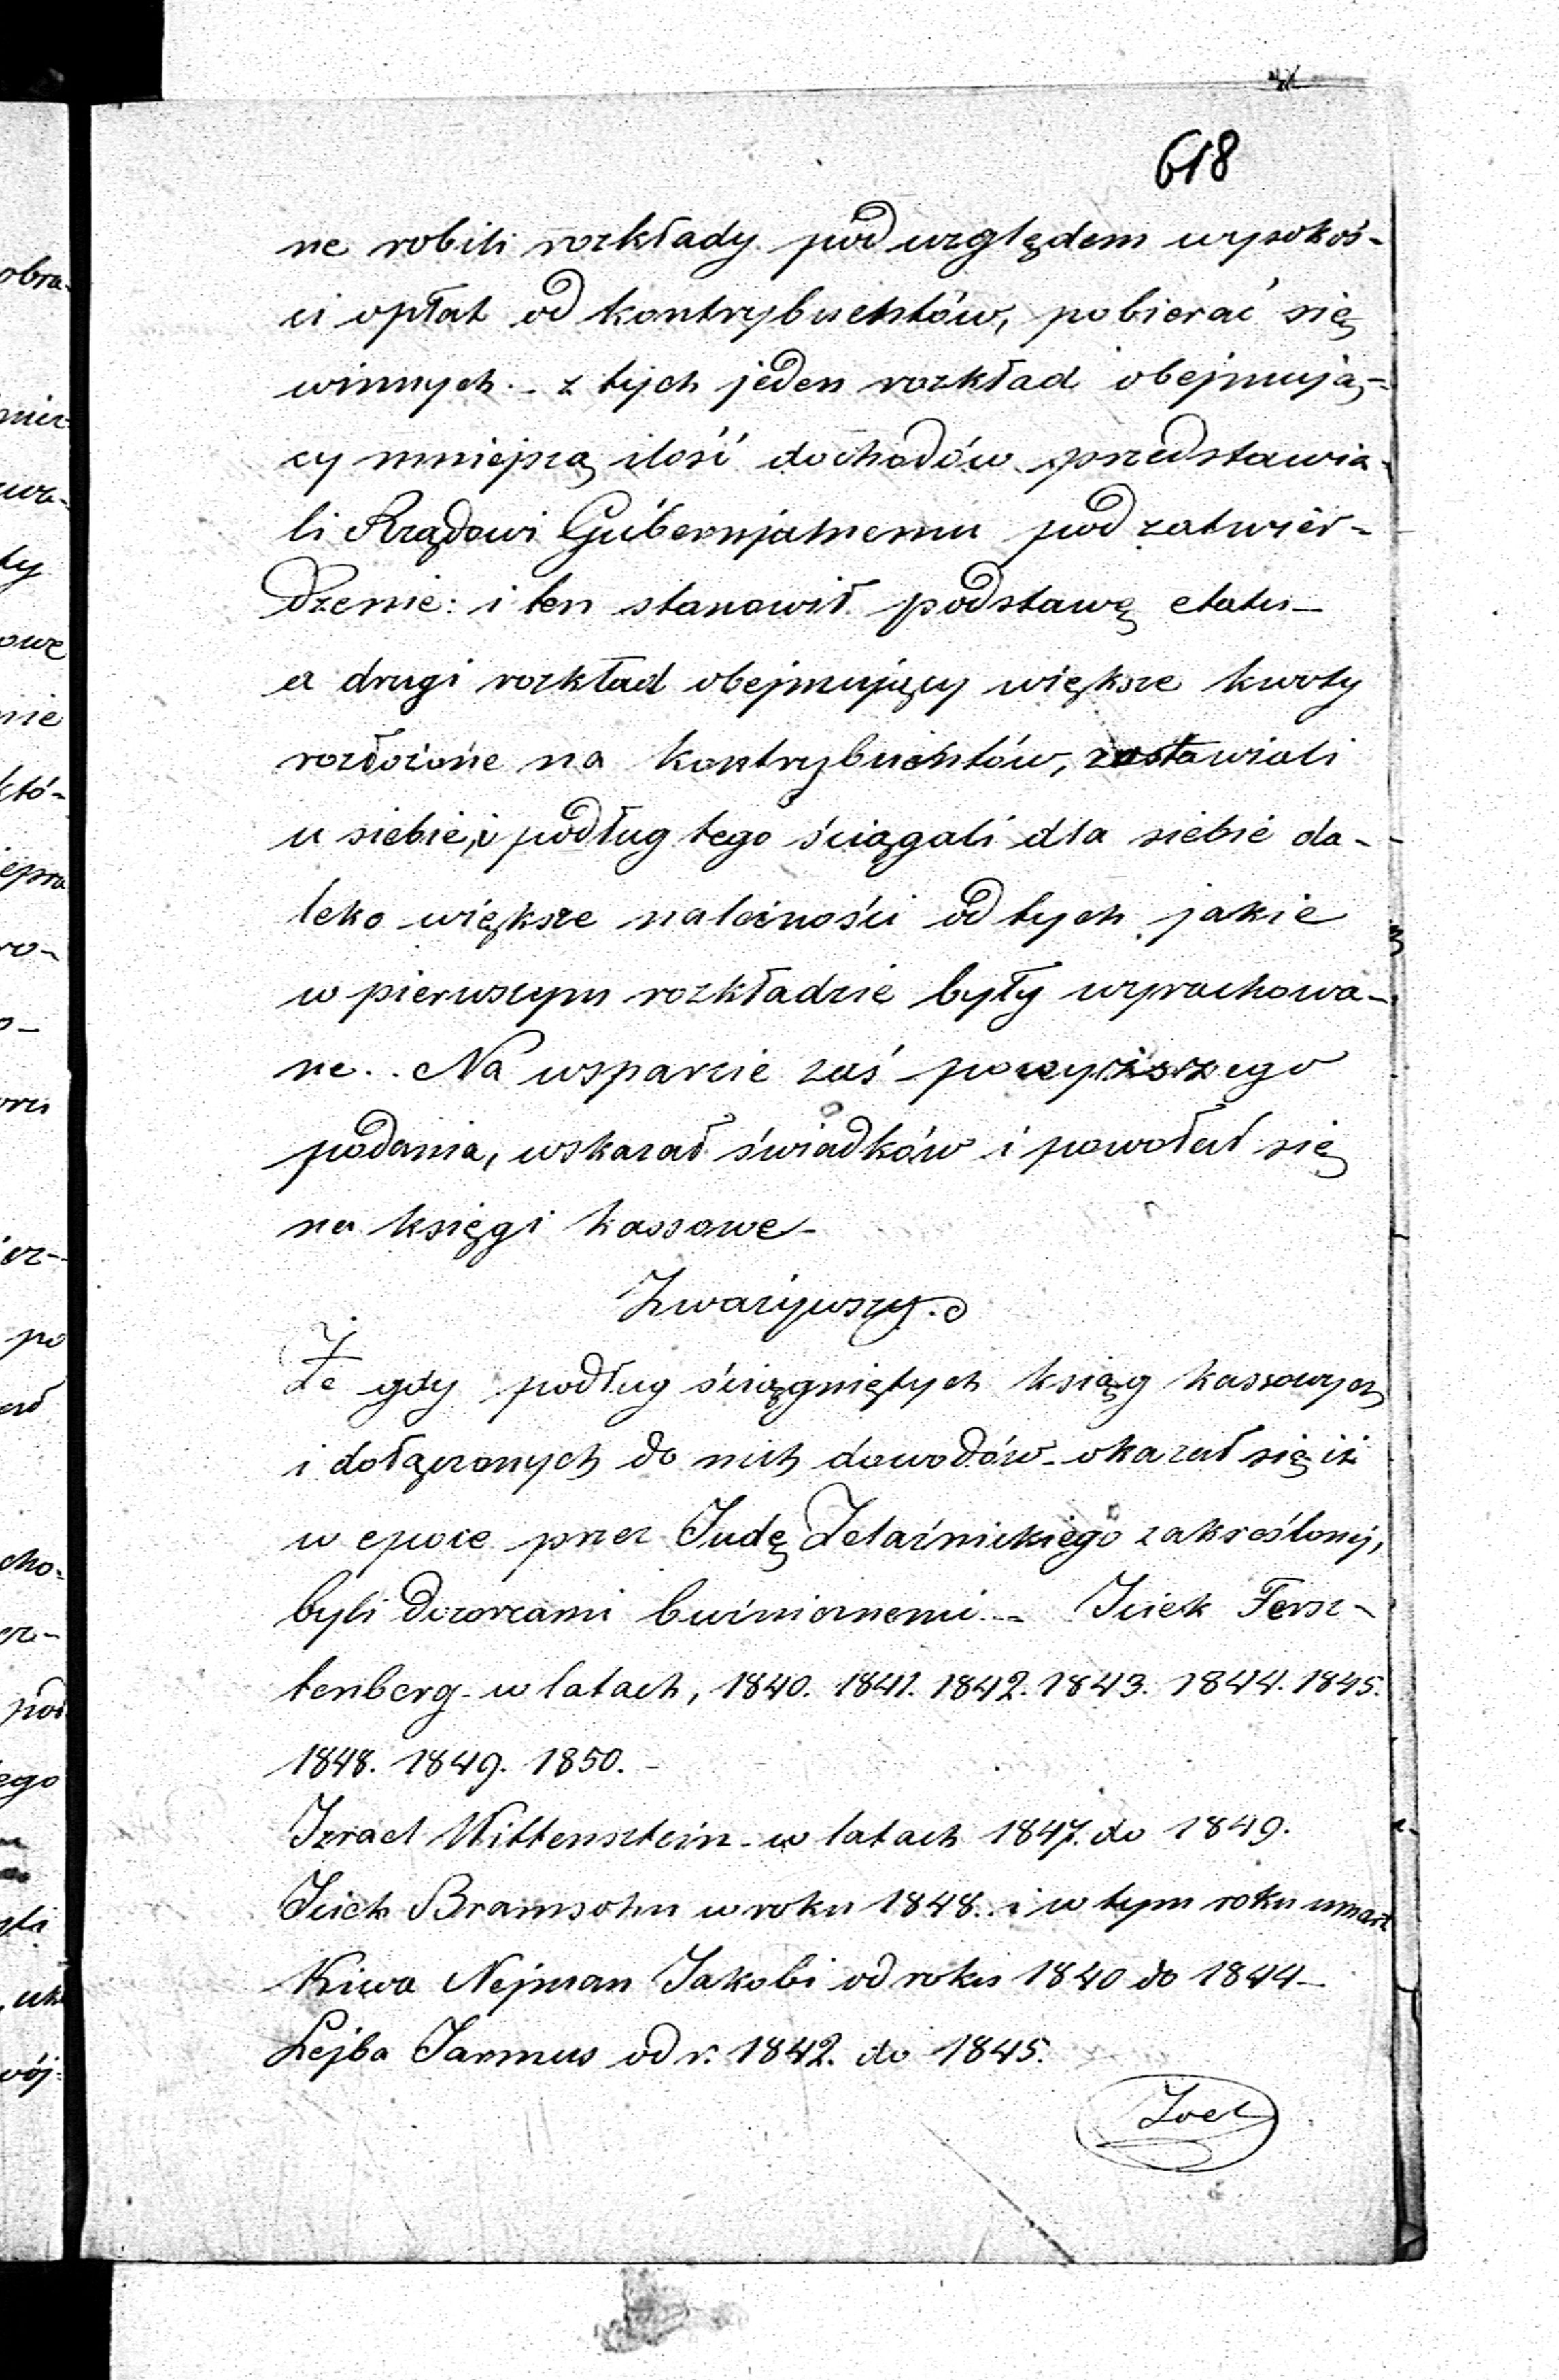 618
ne robili rozkłady pod względem wysokoś-
ci opłat od kontrybuentów, pobierać się
winnych. – z tych jeden rozkład obejmują-
cy mniejszą ilość dochodów przedstawia-
li Rządowi Gubernjalnemu pod zatwier-
dzenie: i ten stanowił podstawę etatu –
a drugi rozkład obejmujący większe kwoty
rozłożone na kontrybuentów, zostawiali
u siebie, i podług tego ściągali dla siebie da-
leko większe należności od tych jakie
w pierwszym rozkładzie były wyrachowa-
ne. . Na wsparcie zaś powyższego
podania, wskazał świadków i powołał się
na księgi kassowe –
Zważywszy.
Że gdy podług ściągniętych ksiąg kassowych
i dołączonych do nich dowodów – okazał się iż
w epoce przez Judę Żelaźnickiego zakreślonej,
byli dozorcami bużnicznemi. – Iciek Fersz-
tenberg – w latach, 1840. 1841. 1842. 1843. 1844. 1845.
1848. 1849. 1850. –
Izrael Wittensztein – w latach 1847. do 1849.
Icick Bramsohn w roku 1848. i w tym roku umarł
Kiwa Nejman Jakobi od roku 1840 do 1844 –
Lejba Jarmus od r. 1842. do 1845.